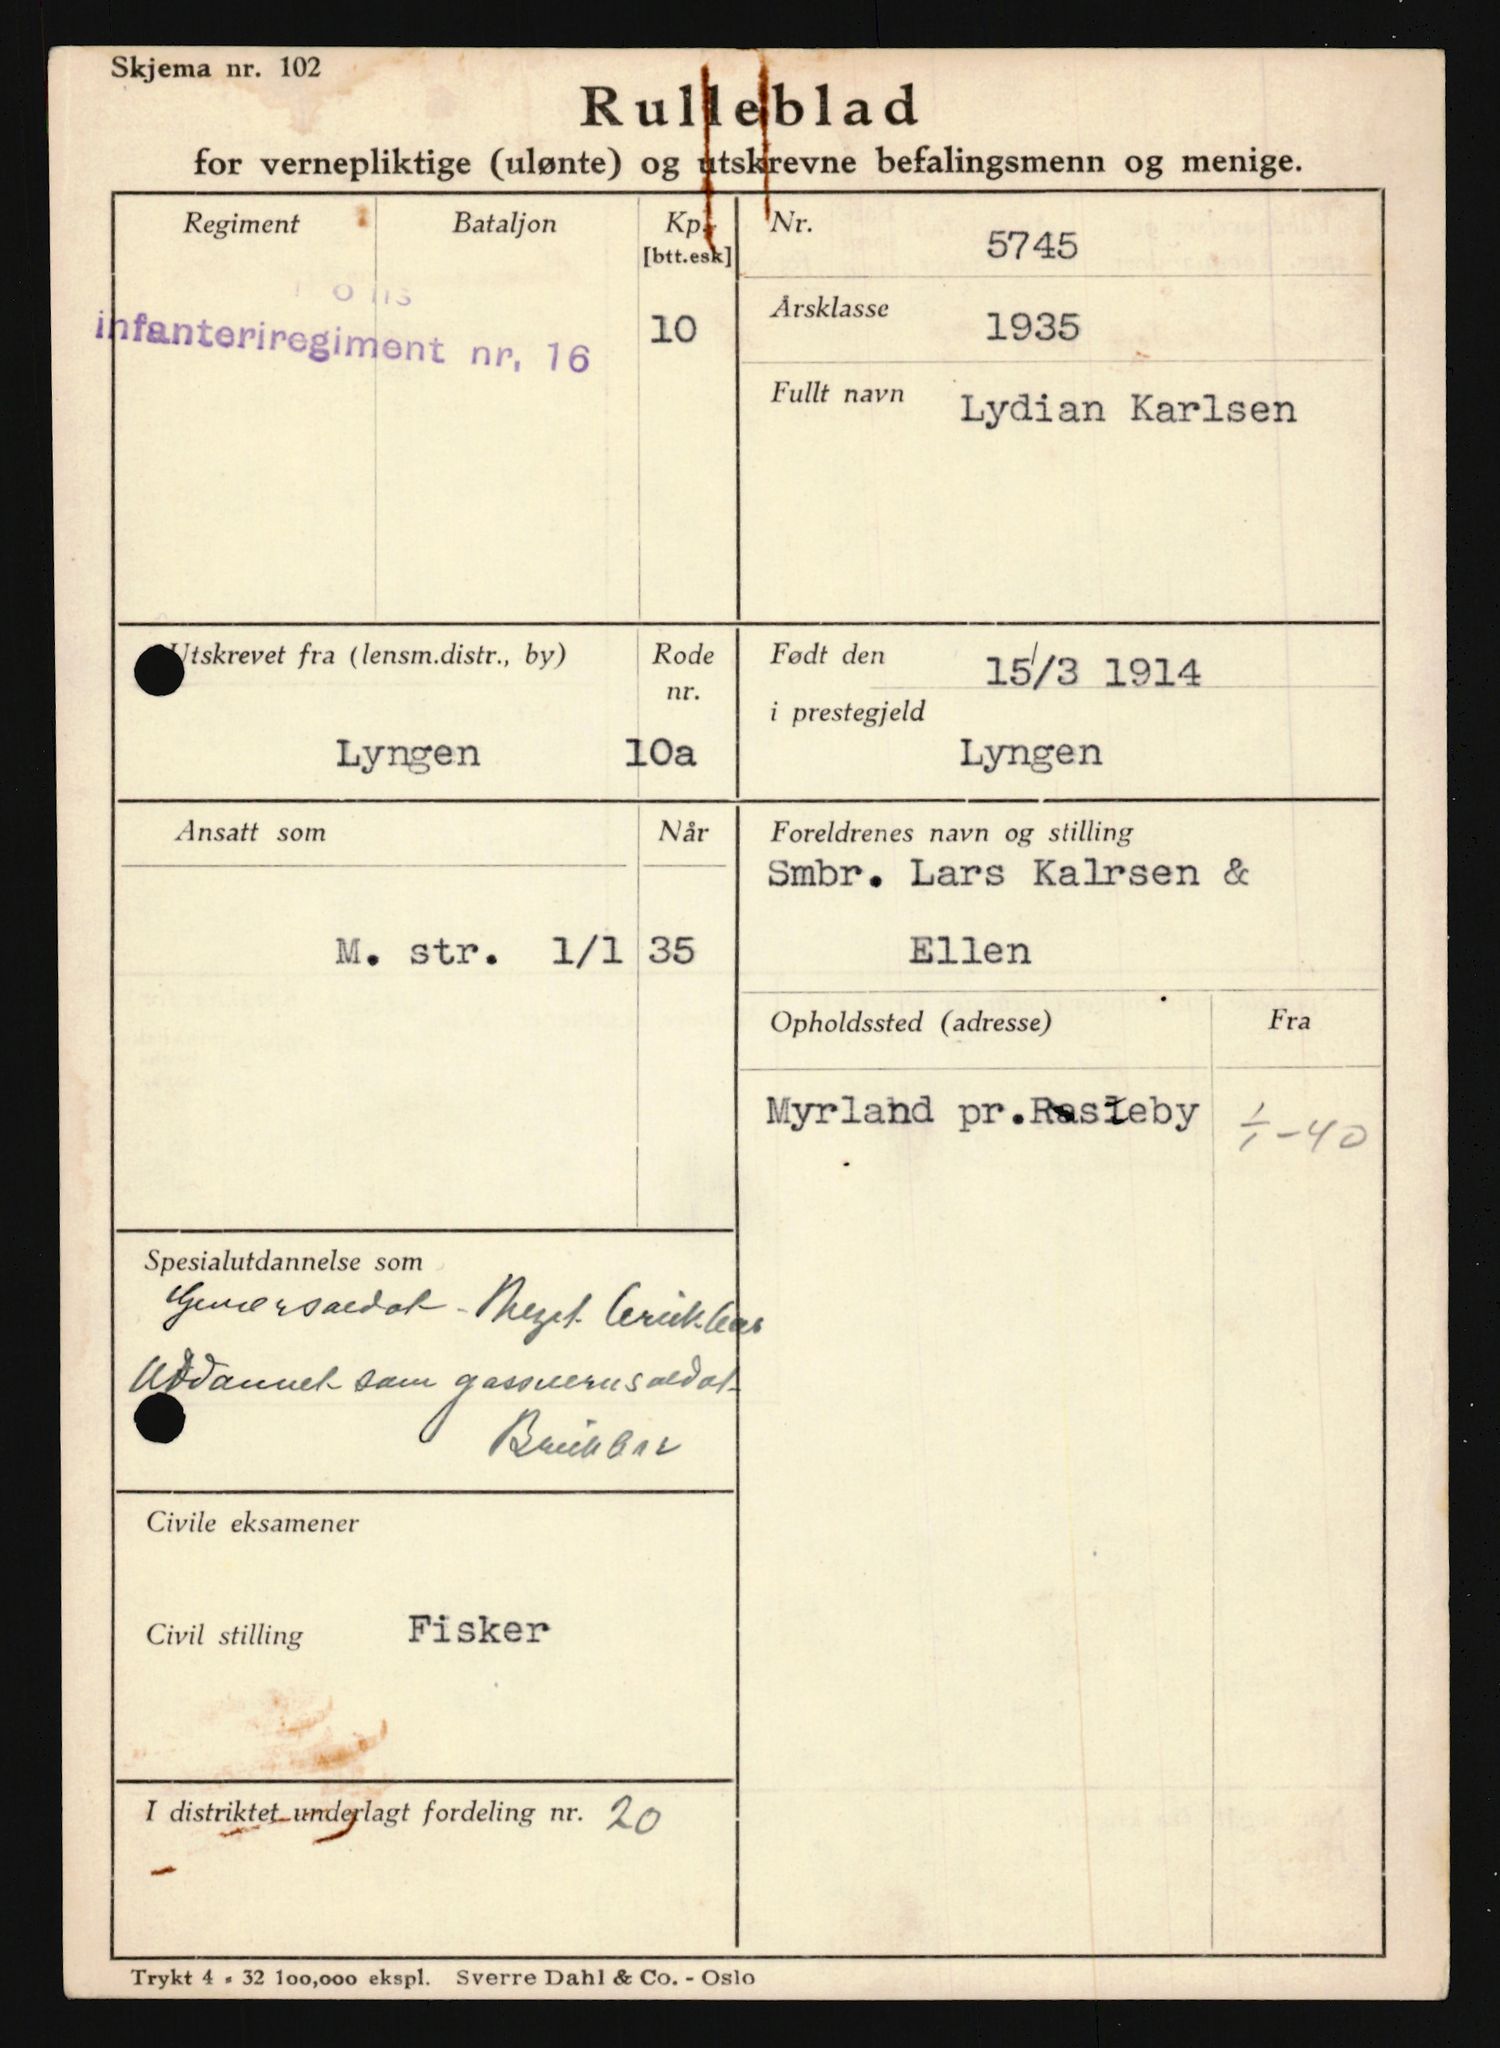 Skjema nr. 102
Rulleblad
for vernepliktige (ulønte) og utskrevne befalingsmenn og menige.
Regiment Bataljon Kp. [btt.esk]
infanteriregiment nr. 16
10
Nr. 5745
Årsklasse 1935
Fullt navn Lydian Karlsen
Utskrevet fra (lensm.distr., by) Rode nr.
Lyngen 10a
Født den 15/3 1914
i prestegjeld
Lyngen
Ansatt som Når
M. str. 1/1 35
Foreldrenes navn og stilling
Smbr. Lars Kalrsen &
Ellen
Opholdssted (adresse) Fra
Myrland pr. 1/1-40
Spesialutdannelse som
Geværsoldat - Meget brukbar
Uddannet som gassvernsoldat
Brukbar
Civile eksamener
Civil stilling Fisker
I distriktet underlagt fordeling nr. 20
Trykt 4 - 32 100,000 ekspl. Sverre Dahl & Co. - Oslo